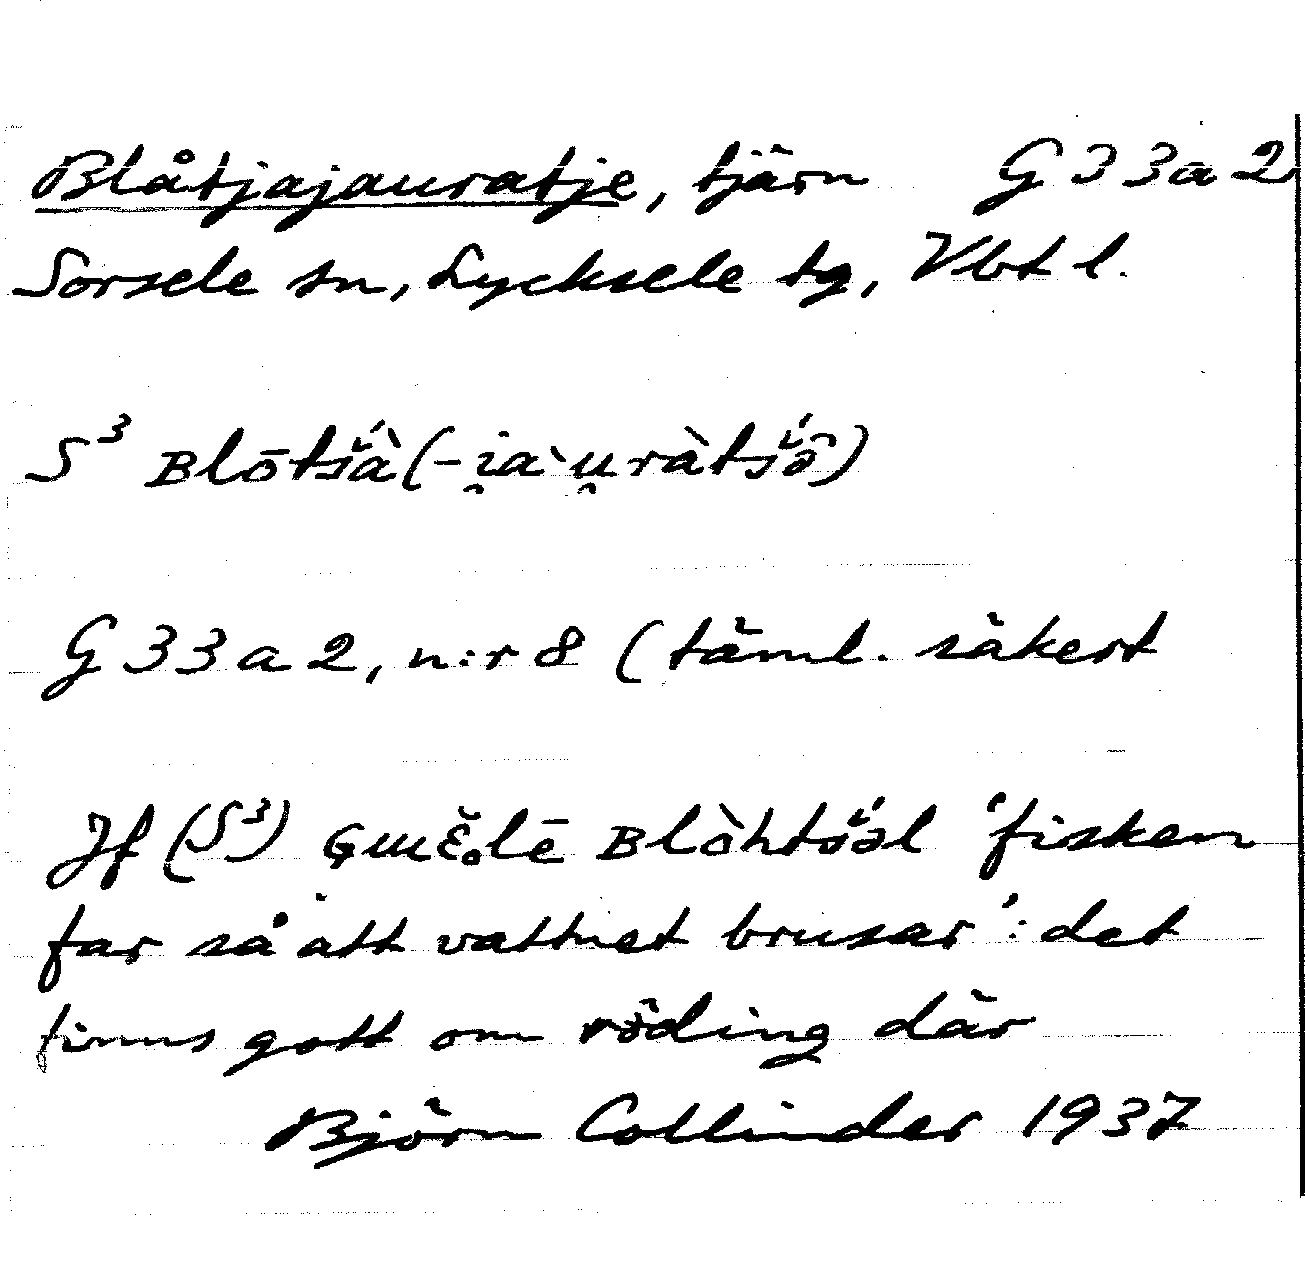 Blåtjajauratje, tjärn G33a2
Sorsele sn, Lycksele tg, Vbt l.
S³
G33a2, n:r 8 (täml. säkert
Jf (S³) 'fisken
far så att vattnet brusar': det
finns gott om röding där
Björn Collinder 1937